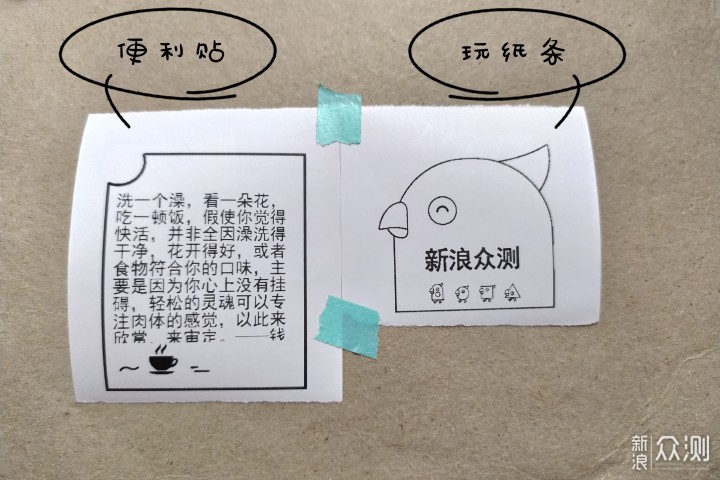 便利贴
玩纸条
洗一个澡，看一朵花，
吃一顿饭，假使你觉得
快活，并非全因澡洗得
干净，花开得好，或者
食物符合你的口味，主
要是因为你心上没有挂
碍，轻松的灵魂可以专
注肉体的感觉，以此来
欣赏，来审定。——钱
新浪众测
新浪众测